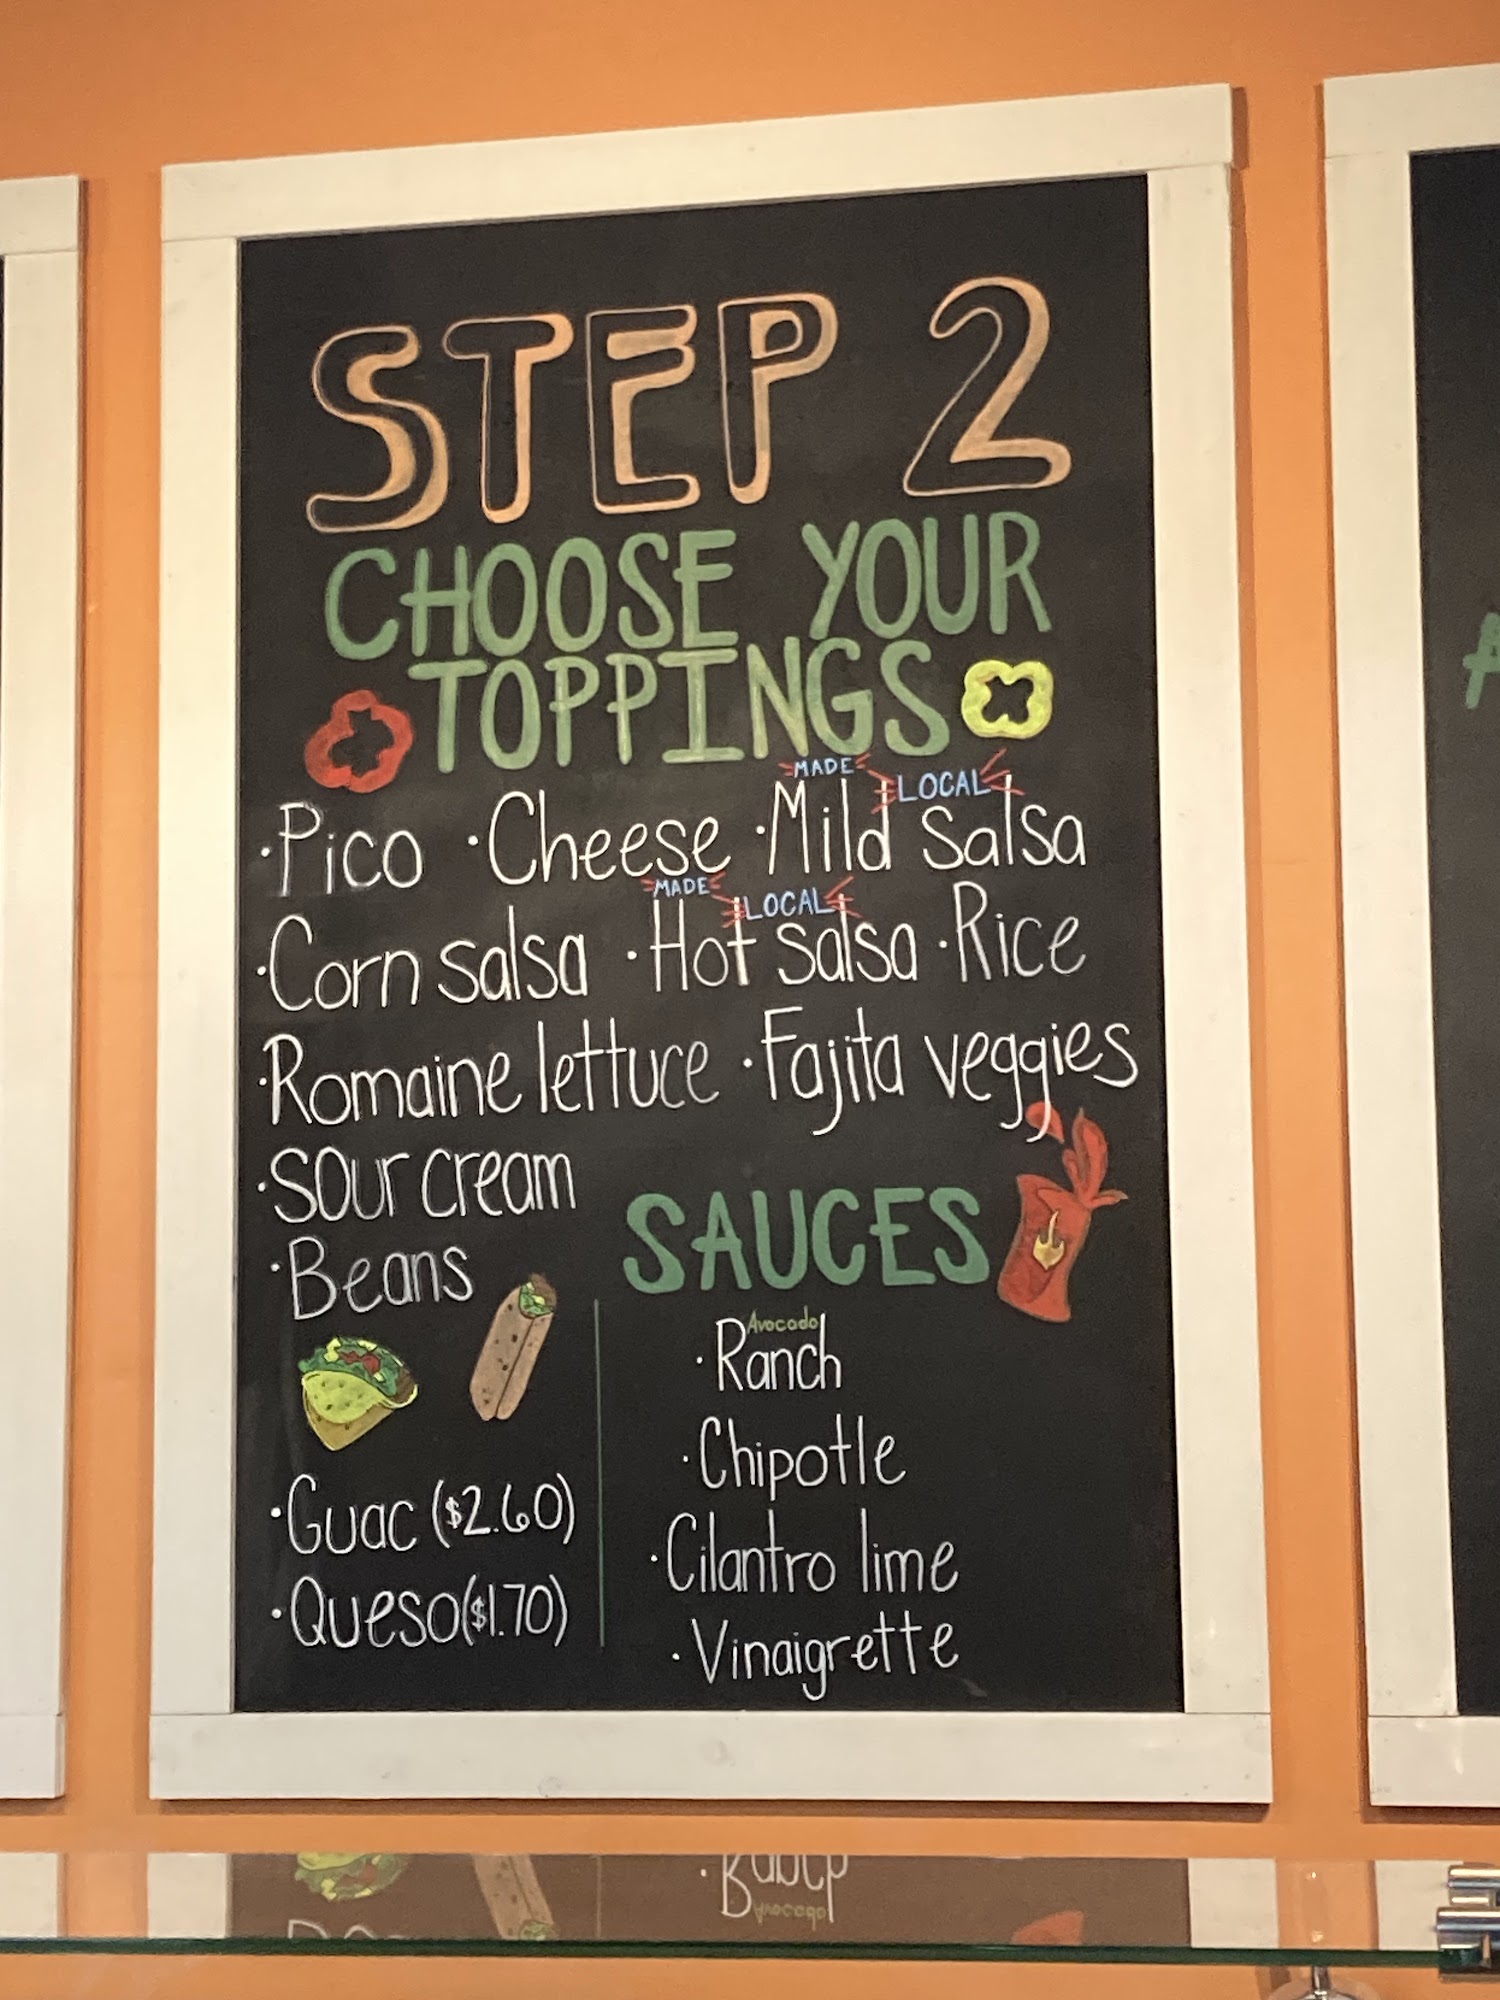 STEP 2
CHOOSE YOUR
TOPPINGS
MADE LOCAL
·Pico ·Cheese ·Mild salsa
MADE LOCAL
·Corn salsa ·Hot salsa ·Rice
·Romaine lettuce ·Fajita veggies
·sour cream
·Beans
·Guac ($2.60)
·Queso ($1.70)
SAUCES
Avocado
·Ranch
·Chipotle
·Cilantro lime
·Vinaigrette